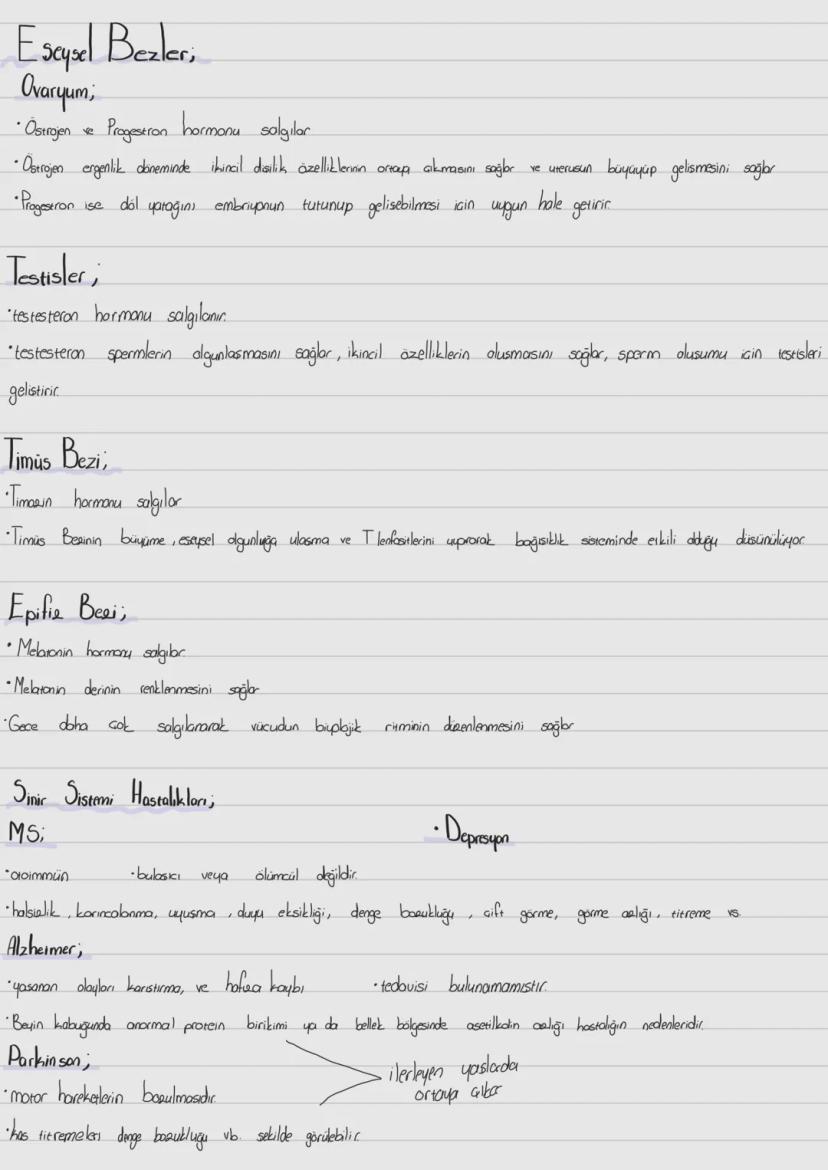 Eseysel Bezler;
Ovaryum;
• Östrojen ve Progestron hormonu salgılar
• Östrojen ergenlik döneminde ikincil dişilik özelliklerinin ortaya çıkmasını sağlar ve uterusun büyüyüp gelismesini sağlar
• Progestron ise döl yatağını embriyonun tutunup gelisebilmesi icin uygun hale getirir.
Testisler;
• testesteron hormonu salgılanır.
• testesteron spermlerin olgunlasmasını sağlar, ikincil özelliklerin olusmasını sağlar, sperm olusumu icin testisleri
gelistirir.
Timüs Bezi;
• Timozin hormonu salgılar
• Timüs Bezinin büyüme, eseysel olgunluğa ulasma ve T lenfositlerini uyararak bağısıklık sisteminde etkili olduğu düsünülüyor.
Epifiz Bezi;
• Melatonin hormonu salgılar.
• Melatonin derinin renklenmesini sağlar
• Gece daha cok salgılanarak vücudun biyolojik ritminin düzenlenmesini sağlar
Sinir Sistemi Hastalıkları;
MS; • Depresyon
• otoimmün • bulasıcı veya ölümcül değildir.
• halsizlik, karıncalanma, uyusma, duyu eksikliği, denge bozukluğu, cift görme, görme azlığı, titreme vs.
Alzheimer;
• yasanan olayları karıstırma, ve hafıza kaybı • tedavisi bulunamamıstır.
• Beyin kabuğunda anormal protein birikimi ya da bellek bölgesinde asetilkolin azlığı hastalığın nedenleridir.
Parkinson;
ilerleyen yaslarda
ortaya çıkar
• motor hareketlerin bozulmasıdır.
• kas titremeleri denge bozukluğu vb. sekilde görülebilir.